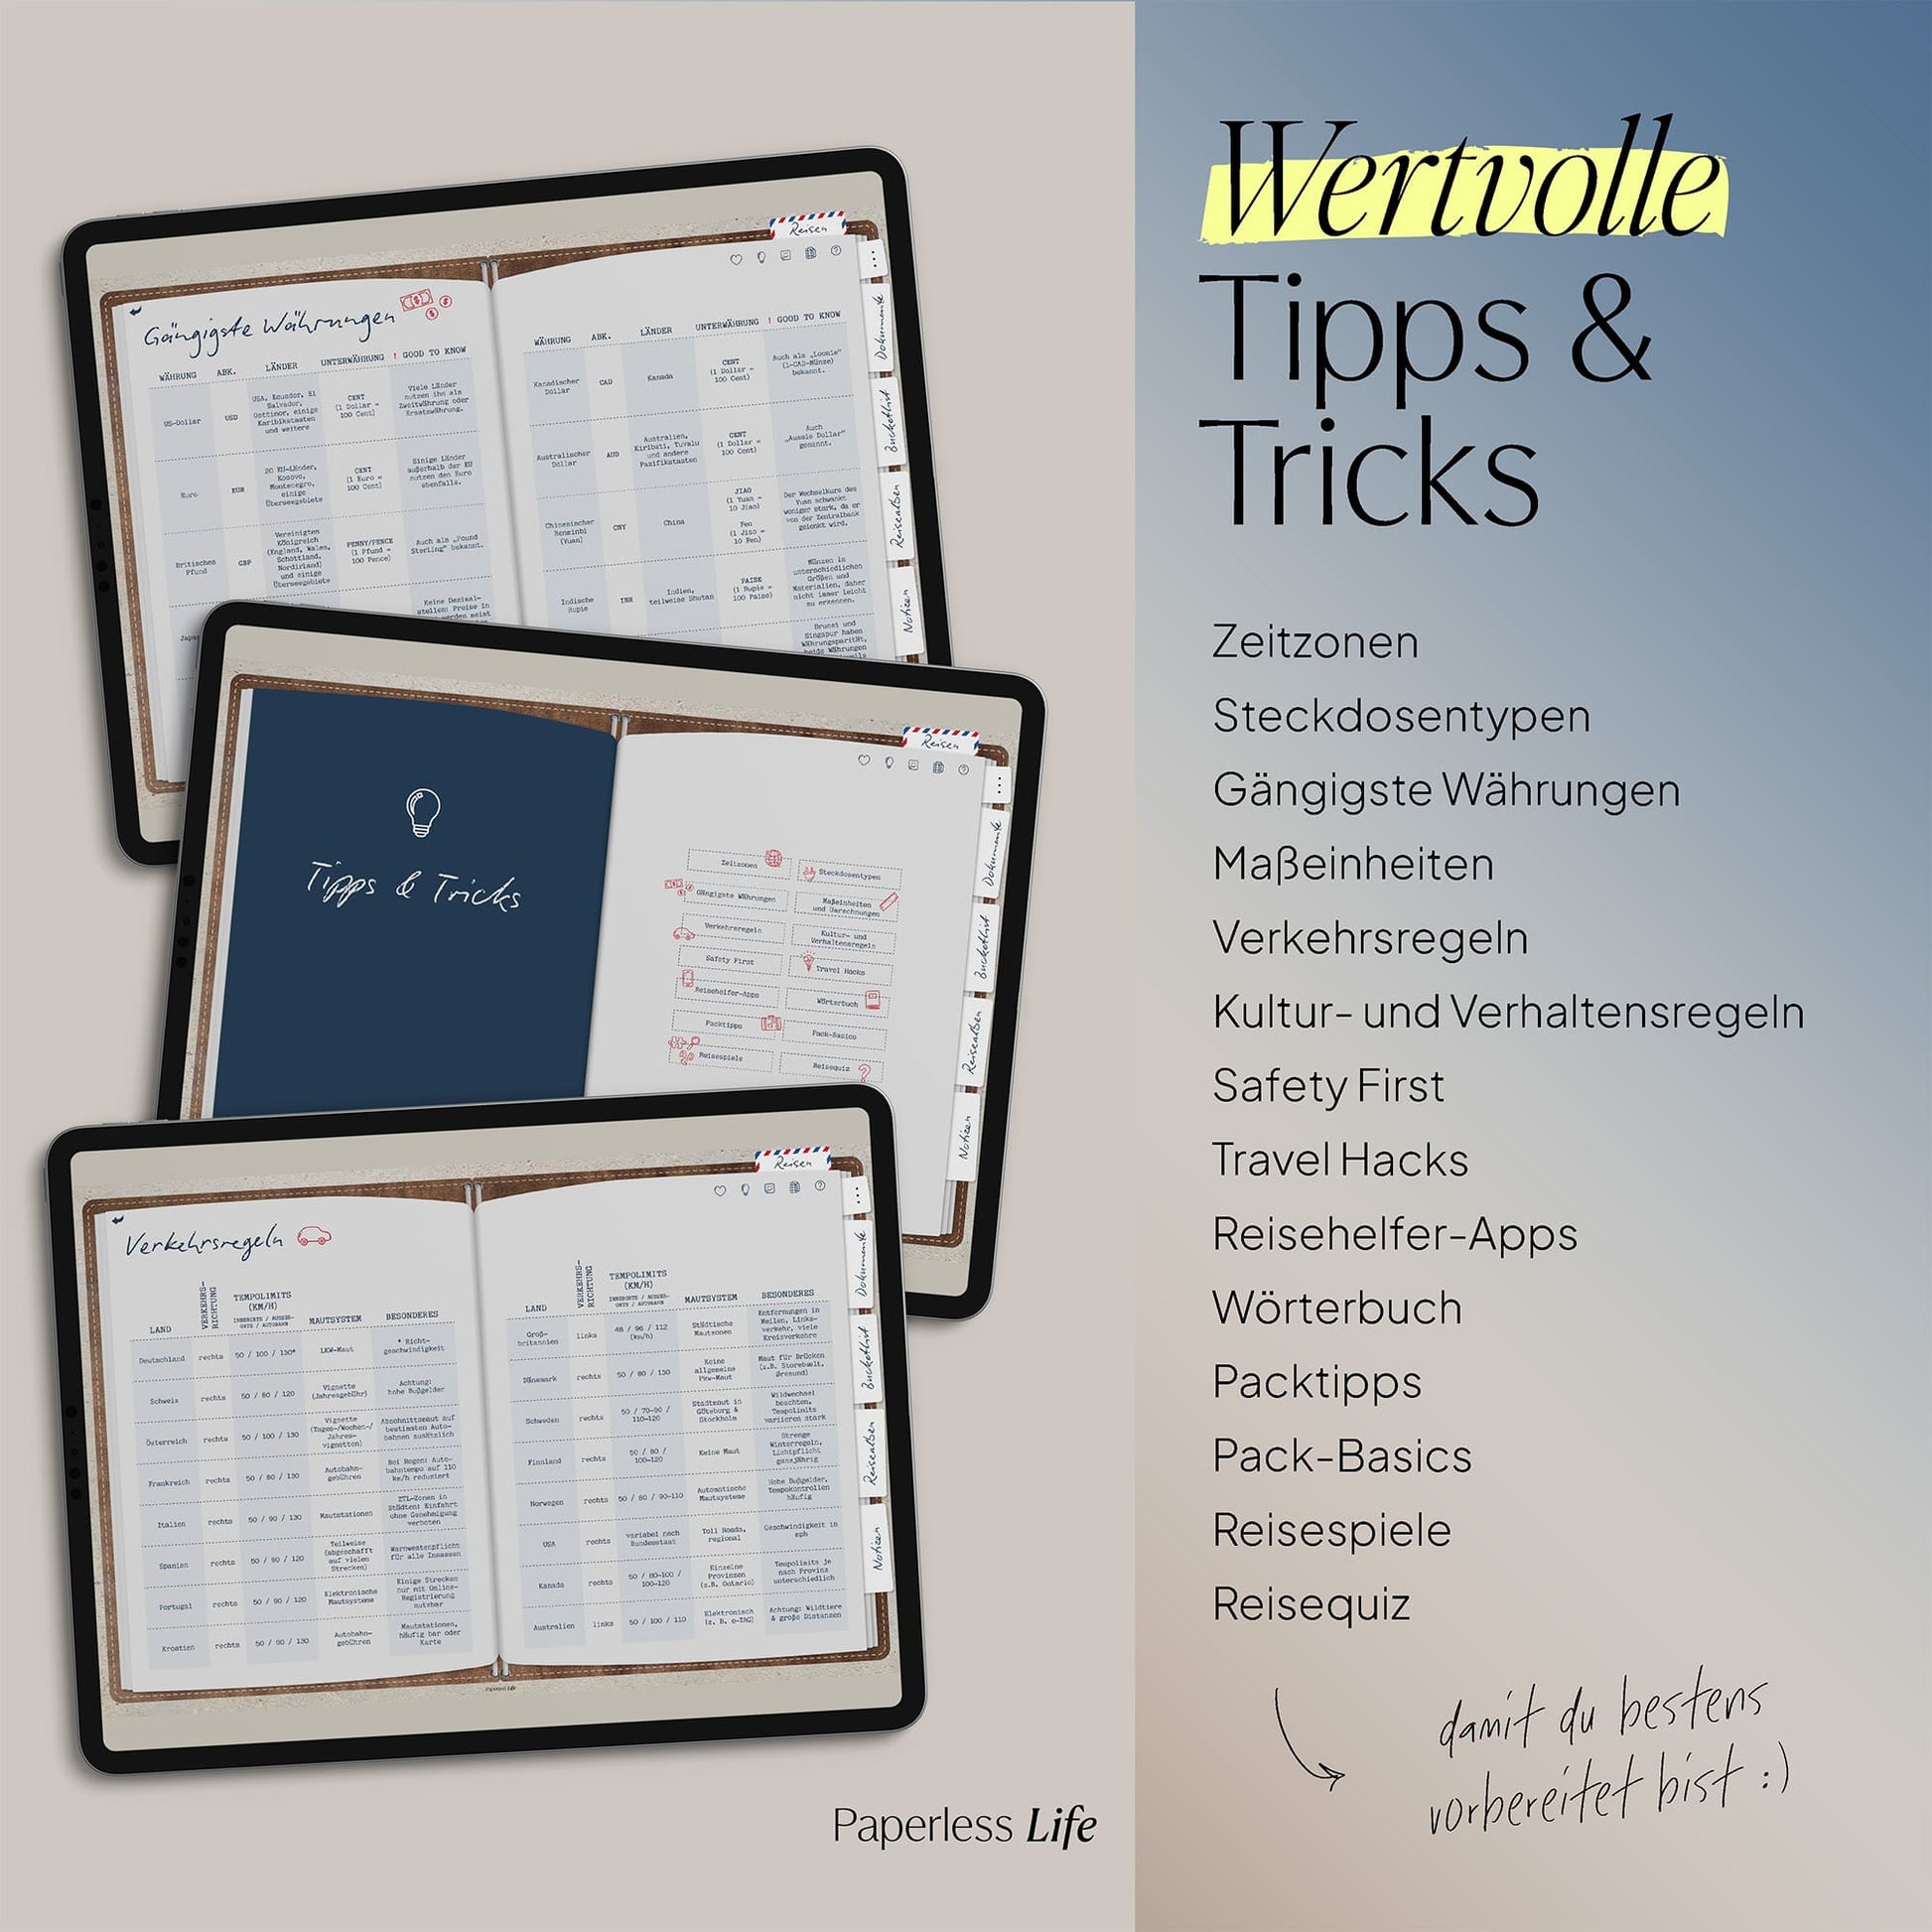 Reisen
Dokumente
Bucketlist
Reisealben
Notizen
Gängigste Währungen
WÄHRUNG ABK. LÄNDER UNTERWÄHRUNG ! GOOD TO KNOW
US-Dollar USD USA, Ecuador, El Salvador, Osttimor, einige Karibikstaaten und weitere CENT (1 Dollar = 100 Cent) Viele Länder nutzen ihn als Zweitwährung oder Ersatzwährung.
Euro EUR 20 EU-Länder, Kosovo, Montenegro, einige Überseegebiete CENT (1 Euro = 100 Cent) Einige Länder außerhalb der EU nutzen den Euro ebenfalls.
Britisches Pfund GBP Vereinigtes Königreich (England, Wales, Schottland, Nordirland) und einige Überseegebiete PENNY/PENCE (1 Pfund = 100 Pence) Auch als „Pound Sterling" bekannt.
Keine Dezimal-
stellen: Preise in
WÄHRUNG ABK. LÄNDER UNTERWÄHRUNG ! GOOD TO KNOW
Kanadischer Dollar CAD Kanada CENT (1 Dollar = 100 Cent) Auch als „Loonie" (1-CAD-Münze) bekannt.
Australischer Dollar AUD Australien, Kiribati, Tuvalu und andere Pazifikstaaten CENT (1 Dollar = 100 Cent) Auch „Aussie Dollar" genannt.
Chinesischer Renminbi (Yuan) CNY China JIAO (1 Yuan = 10 Jiao) Fen (1 Jiao = 10 Fen) Der Wechselkurs des Yuan schwankt weniger stark, da er von der Zentralbank gelenkt wird.
Indische Rupie INR Indien, teilweise Bhutan PAISE (1 Rupie = 100 Paise) Münzen in unterschiedlichen Größen und Materialien, daher nicht immer leicht zu erkennen.
Brunei und
Singapur haben
Währungsparität,
Tipps & Tricks
Reisen
Zeitzonen
Steckdosentypen
Gängigste Währungen
Maßeinheiten und Umrechnungen
Verkehrsregeln
Kultur- und Verhaltensregeln
Safety First
Travel Hacks
Reisehelfer-Apps
Wörterbuch
Packtipps
Pack-Basics
Reisespiele
Reisequiz
Dokumente
Bucketlist
Reisealben
Notizen
Reisen
Verkehrsregeln
LAND VERKEHRS-RICHTUNG TEMPOLIMITS (KM/H) INNERORTS / AUSSER-ORTS / AUTOBAHN MAUTSYSTEM BESONDERES
Deutschland rechts 50 / 100 / 130* LKW-Maut * Richt-geschwindigkeit
Schweiz rechts 50 / 80 / 120 Vignette (Jahresgebühr) Achtung: hohe Bußgelder
Österreich rechts 50 / 100 / 130 Vignette (Tages-/Wochen-/Jahres-vignetten) Abschnittsmaut auf bestimmten Auto-bahnen zusätzlich
Frankreich rechts 50 / 80 / 130 Autobahn-gebühren Bei Regen: Auto-bahntempo auf 110 km/h reduziert
Italien rechts 50 / 90 / 130 Mautstationen ZTL-Zonen in Städten: Einfahrt ohne Genehmigung verboten
Spanien rechts 50 / 90 / 120 Teilweise (abgeschafft auf vielen Strecken) Warnwestenpflicht für alle Insassen
Portugal rechts 50 / 90 / 120 Elektronische Mautsysteme Einige Strecken nur mit Online-Registrierung nutzbar
Kroatien rechts 50 / 90 / 130 Autobahn-gebühren Mautstationen, häufig bar oder Karte
LAND VERKEHRS-RICHTUNG TEMPOLIMITS (KM/H) INNERORTS / AUSSER-ORTS / AUTOBAHN MAUTSYSTEM BESONDERES
Groß-britannien links 48 / 96 / 112 (km/h) Städtische Mautzonen Entfernungen in Meilen, Links-verkehr, viele Kreisverkehre
Dänemark rechts 50 / 80 / 130 Keine allgemeine Pkw-Maut Maut für Brücken (z.B. Storebælt, Øresund)
Schweden rechts 50 / 70-90 / 110-120 Stadtmaut in Göteborg & Stockholm Wildwechsel beachten, Tempolimits variieren stark
Finnland rechts 50 / 80 / 100-120 Keine Maut Strenge Winterregeln, Lichtpflicht ganzjährig
Norwegen rechts 50 / 80 / 90-110 Automatische Mautsysteme Hohe Bußgelder, Tempokontrollen häufig
USA rechts variabel nach Bundesstaat Toll Roads, regional Geschwindigkeit in mph
Kanada rechts 50 / 80-100 / 100-120 Einzelne Provinzen (z.B. Ontario) Tempolimits je nach Provinz unterschiedlich
Australien links 50 / 100 / 110 Elektronisch (z. B. e-TAG) Achtung: Wildtiere & große Distanzen
Dokumente
Bucketlist
Reisealben
Notizen
Paperless Life
Paperless Life
Wertvolle
Tipps &
Tricks
Zeitzonen
Steckdosentypen
Gängigste Währungen
Maßeinheiten
Verkehrsregeln
Kultur- und Verhaltensregeln
Safety First
Travel Hacks
Reisehelfer-Apps
Wörterbuch
Packtipps
Pack-Basics
Reisespiele
Reisequiz
damit du bestens
vorbereitet bist :)